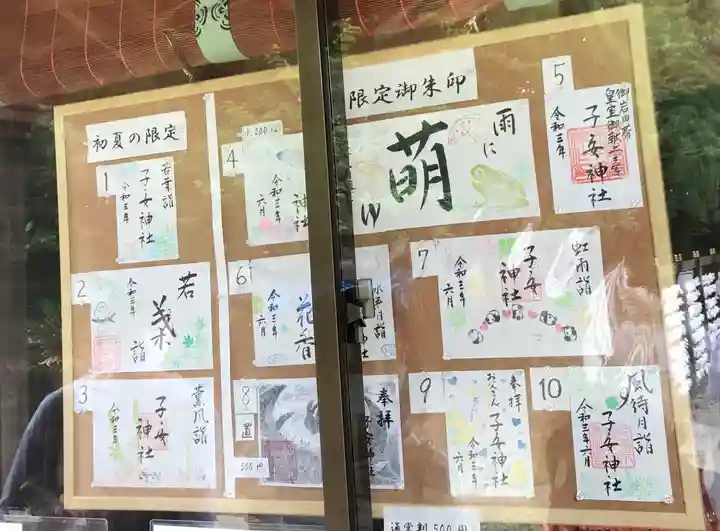 初夏の限定
1
若葉詣
子安神社
令和三年
2
若
葉
詣
令和三年
3
薫風詣
子安神社
令和三年
限定御朱印
4
神社
令和三年
六月
雨に
萌
ゆ
5
子安神社
令和三年
6
水無月詣
花香
令和三年
六月
7
虹雨詣
子安
神社
令和三年
六月
8
奉拝
書置
500円
9
奉拝
子安神社
令和三年
六月
10
風待月詣
子安神社
令和三年六月
通常判500円